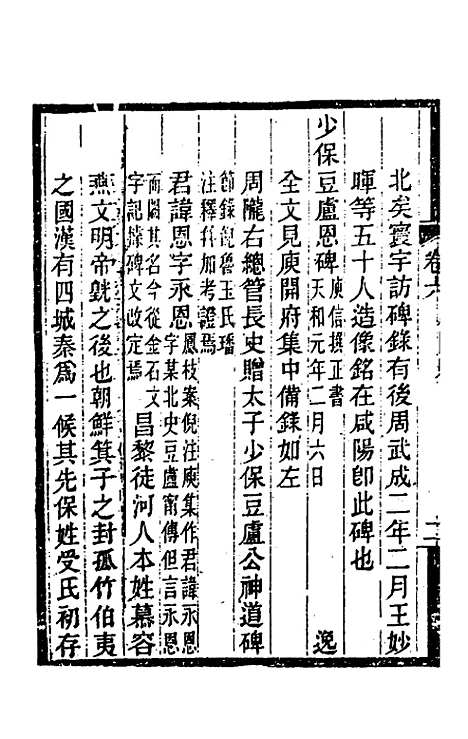 北矣寰宇訪碑錄有後周武成二年二月王妙
暉等五十人造像銘在咸陽卽此碑也
少保豆盧恩碑 庾信撰正書 天和元年二月六日 逸
全文見庾開府集中備錄如左
周隴右總管長史贈太子少保豆盧公神道碑
節錄倪魯玉氏璠
注釋幷加考證焉
君諱恩字永恩 鳳枝案倪注庾集作君諱永恩
字某北史豆盧甯傳但言永恩
而闕其名今從金石文
字記據碑文改定焉 昌黎徒河人本姓慕容
燕文明帝皝之後也朝鮮箕子之封孤竹伯夷
之國漢有四城秦爲一候其先保姓受氏初存
卷六